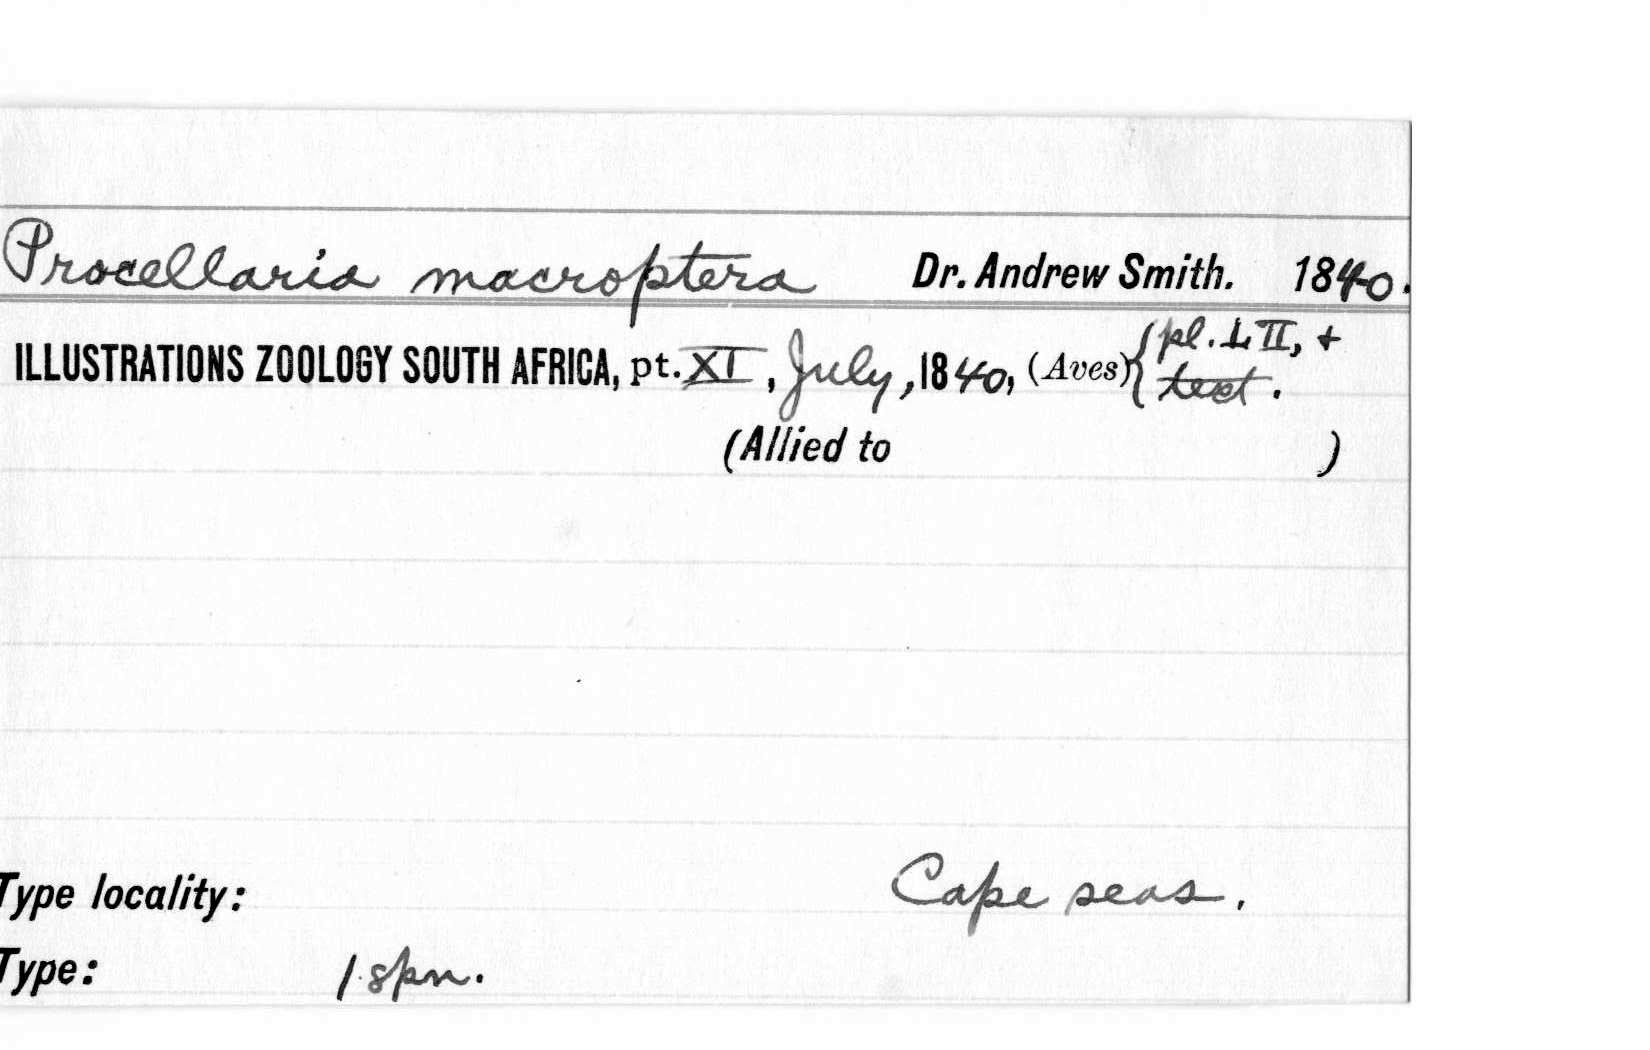 Procellaria macroptera Dr. Andrew Smith. 1840.
ILLUSTRATIONS ZOOLOGY SOUTH AFRICA, pt. XI, July, 1840, (Aves) { pl. LII, +
text.
(Allied to )
Type locality: Cape seas.
Type: 1 spn.